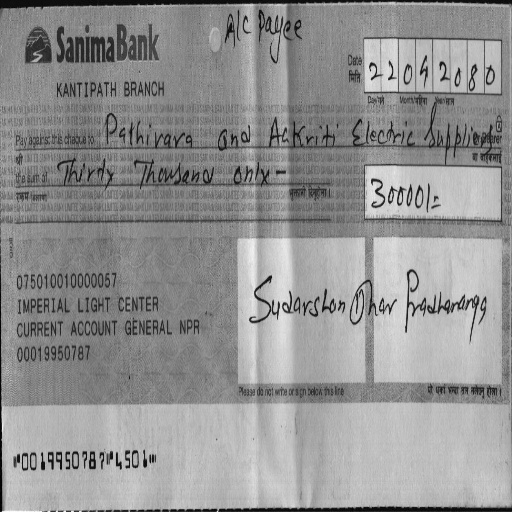 A/C Payee
SanimaBank
KANTIPATH BRANCH
Date मिति 22042080
Day/गते Month/महिना Year/साल
Pay against this cheque to Pathivara and Aakriti Electric Suppliers or Bearer
श्री वा वाहकलाई
the sum of Thirty Thousand only -
30000/=
075010010000057
IMPERIAL LIGHT CENTER
CURRENT ACCOUNT GENERAL NPR
00019950787
Sudarshan Dhar Pradhananga
Please do not write or sign below this line
⑈0019950787⑈4501⑈